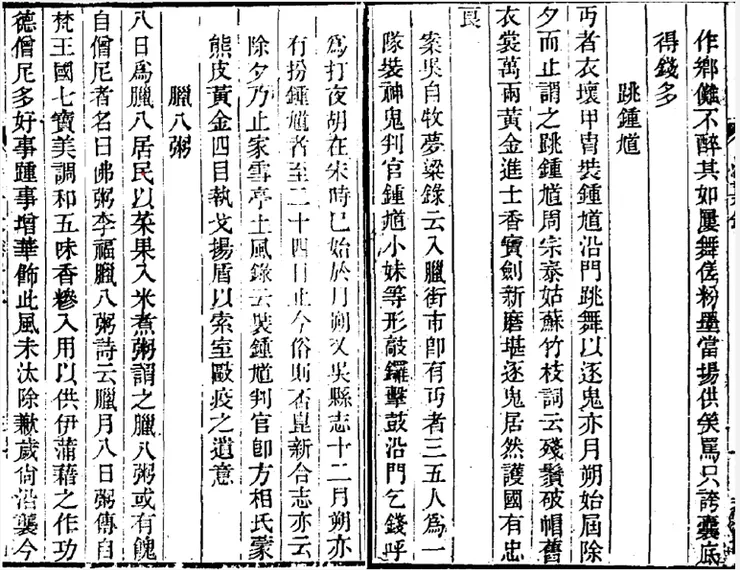 作鄕儺不醉其如屢舞傞粉墨當場供笑罵只誇囊底
得錢多
跳鍾馗
丐者衣壞甲冑裝鍾馗沿門跳舞以逐鬼亦月朔始屆除
夕而止謂之跳鍾馗周宗泰姑蘇竹枝詞云殘鬚破帽舊
衣裳萬兩黃金進士香寶劍新磨堪逐鬼居然護國有忠
良
案吳自牧夢粱錄云入臘街市卽有丐者三五人爲一
隊裝神鬼判官鍾馗小妹等形敲鑼擊鼓沿門乞錢呼
爲打夜胡在宋時已始於月朔又吳縣志十二月朔亦
有扮鍾馗者至二十四日止今俗則否崑新合志亦云
除夕乃止家雪亭土風錄云裝鍾馗判官卽方相氏蒙
熊皮黃金四目執戈揚盾以索室毆疫之遺意
臘八粥
八日爲臘八居民以菜果入米煮粥謂之臘八粥或有餽
自僧尼者名曰佛粥李福臘八粥詩云臘月八日粥傳自
梵王國七寶美調和五味香糝入用以供伊蒲藉之作功
德僧尼多好事踵事增華飾此風未汰除歉歲尙沿襲今